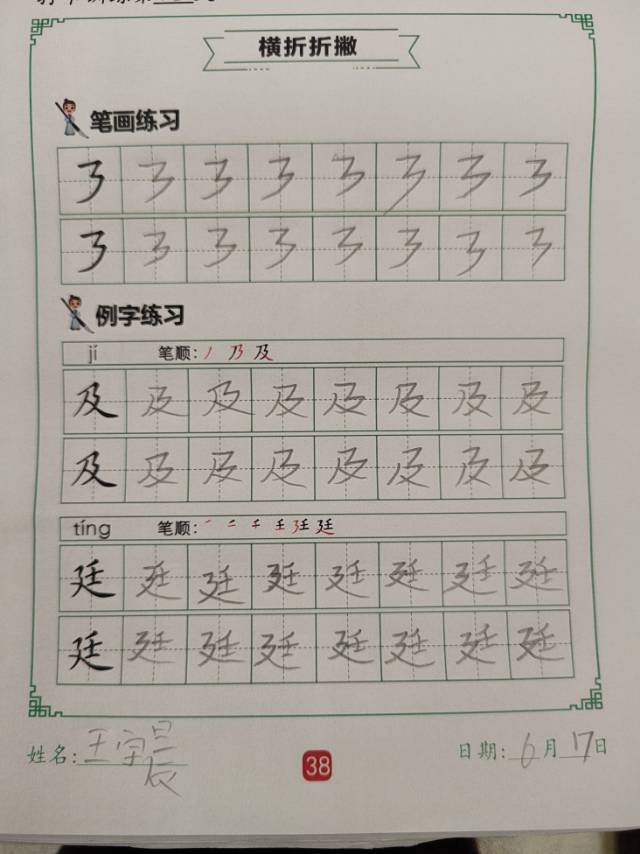 横折折撇
笔画练习
㇋ ㇋ ㇋ ㇋ ㇋ ㇋ ㇋ ㇋
㇋ ㇋ ㇋ ㇋ ㇋ ㇋ ㇋ ㇋
例字练习
jí 笔顺: 丿 乃 及
及 及 及 及 及 及 及 及
及 及 及 及 及 及 及 及
tíng 笔顺: ㇀ 二 千 壬 廷 廷
廷 廷 廷 廷 廷 廷 廷 廷
廷 廷 廷 廷 廷 廷 廷 廷
姓名: 王宇晨 38 日期: 6月17日